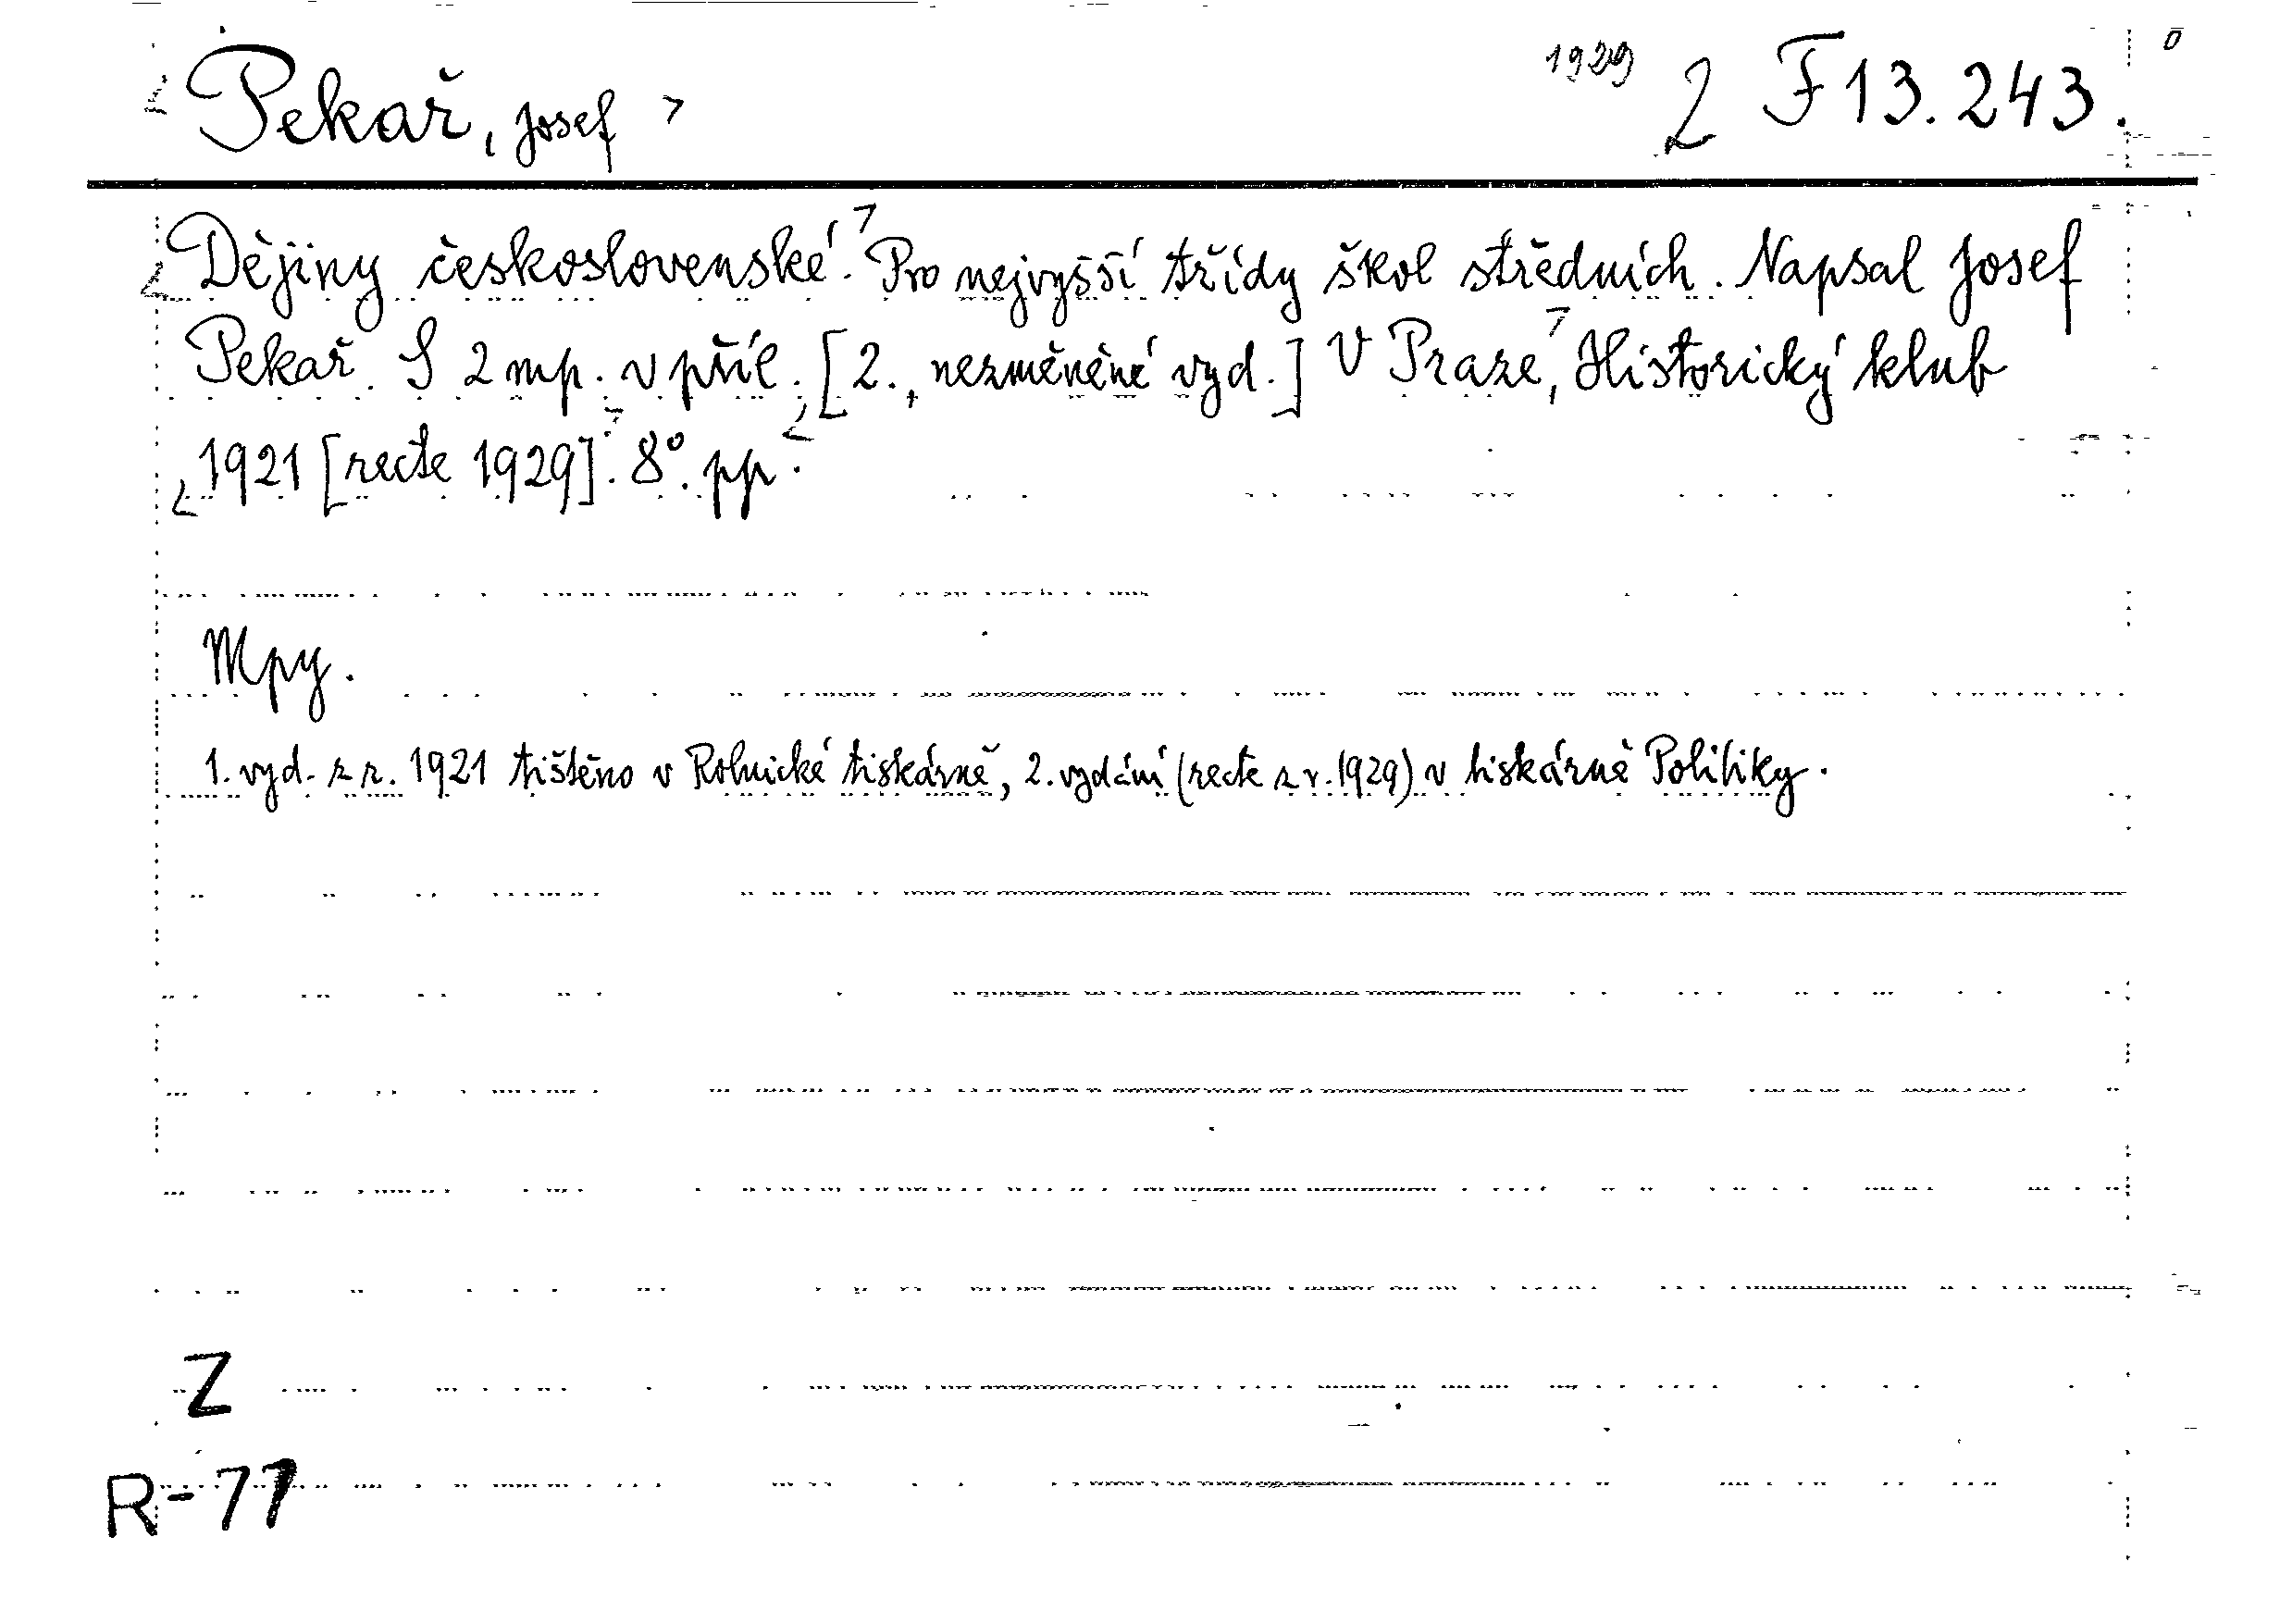 Pekař, Josef 1929 2 F 13.243.
Dějiny československé. Pro nejvyšší třídy škol středních. Napsal Josef
Pekař. S 2 mp. v příl. [2., nezměněné vyd.] V Praze, Historický klub
1921 [recte 1929]. 8°. pp.
Mpy.
1. vyd. z r. 1921 tištěno v Rolnické tiskárně, 2. vydání (recte z r. 1929) v tiskárně Politiky.
Z
R-77